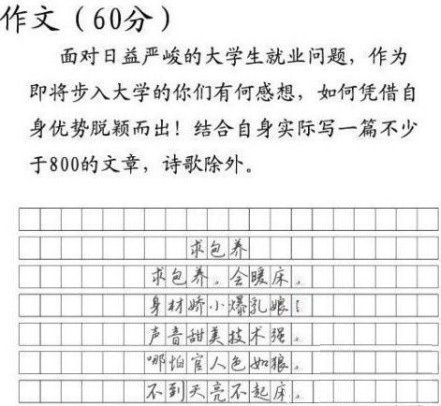 作文（60分）
面对日益严峻的大学生就业问题，作为
即将步入大学的你们有何感想，如何凭借自
身优势脱颖而出！结合自身实际写一篇不少
于800的文章，诗歌除外。
求包养
求包养。会暖床。
身材娇小爆乳娘！
声音甜美技术强。
哪怕官人色如狼。
不到天亮不起床。